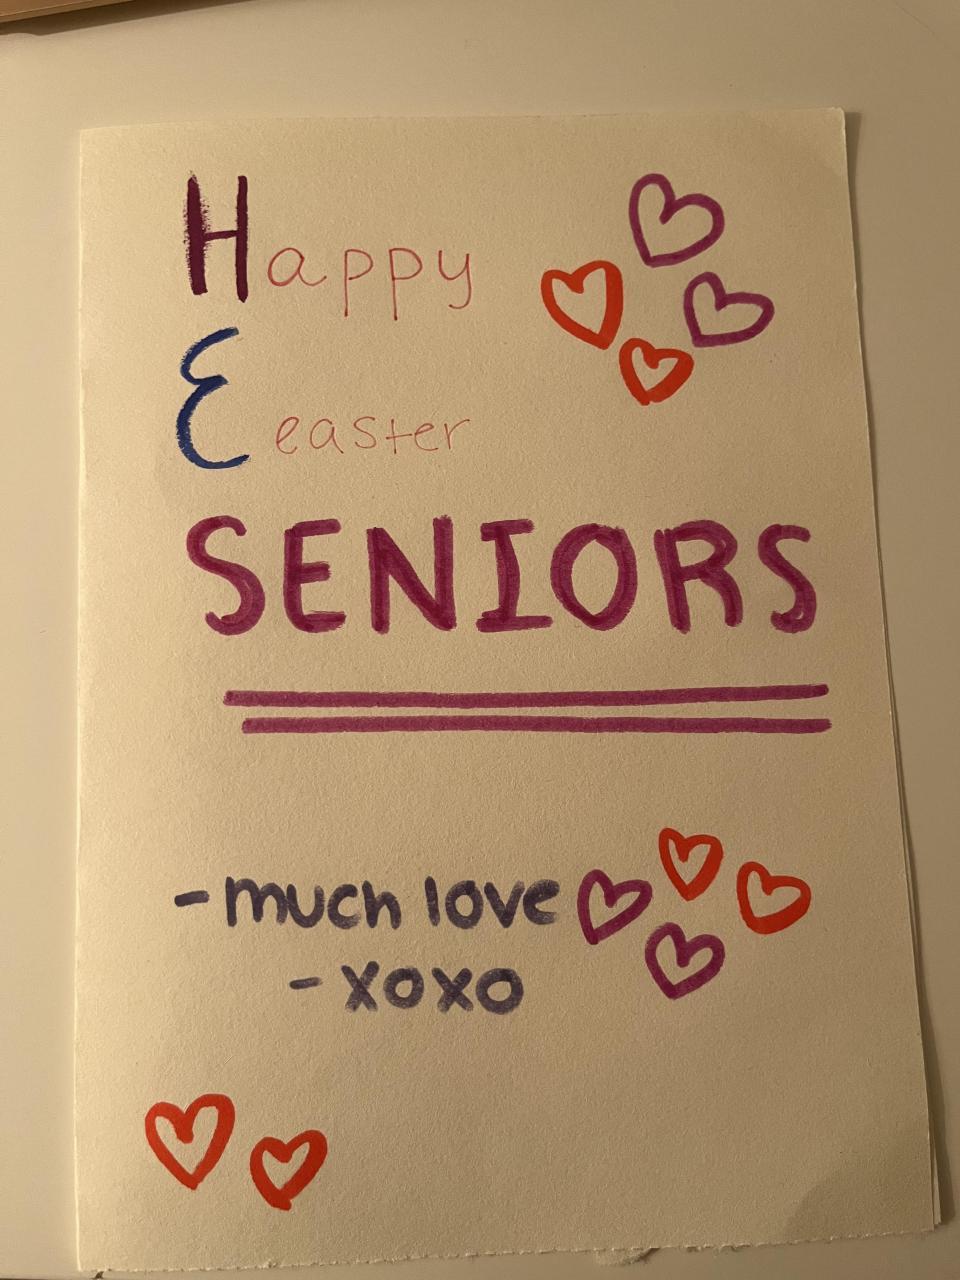 Happy
Eeaster
SENIORS
- much love
- xoxo